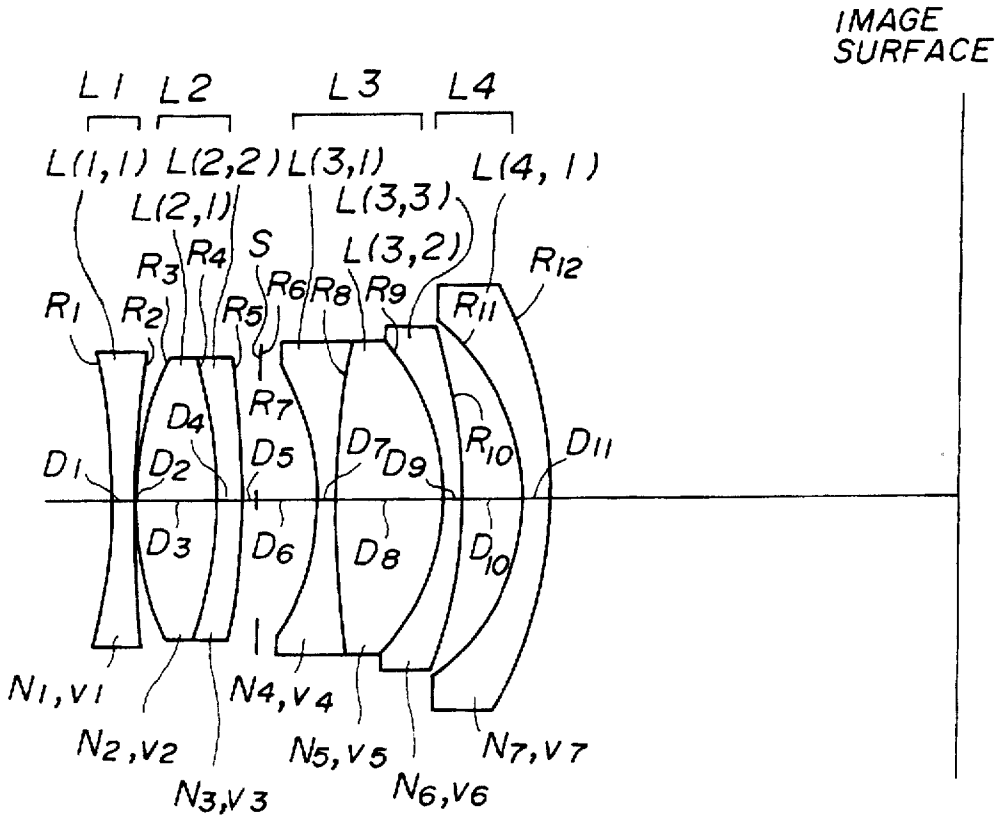 IMAGE
SURFACE
L1 L2 L3 L4
L(1,1) L(2,2) L(3,1) L(4,1)
L(2,1) L(3,3)
L(3,2)
S
R1 R2 R3 R4 R5 R6 R8 R9 R11 R12
R7
R10
D4
D1 D2 D5 D7 D9 D11
D3 D6 D8 D10
N1,ν1 N4,ν4
N2,ν2 N5,ν5 N7,ν7
N3,ν3 N6,ν6